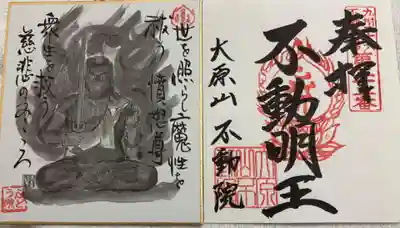 世を照らし魔性を
祓う 憤怒尊
衆生を救う
慈悲のこころ
奉拝
不動明王
大原山 不動院